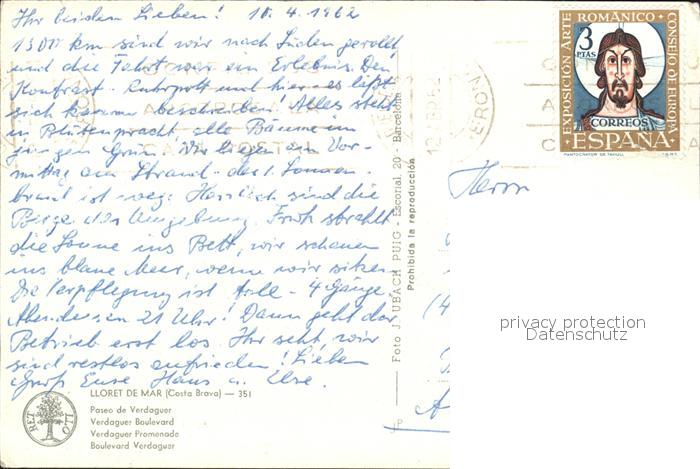 Ihr beiden Lieben! 10.4.1962
1300 km sind wir nach Süden gerollt
und die Fahrt war ein Erlebnis. Den
Kontrast - Ruhrpott und hier es läßt
sich kaum beschreiben! Alles steht
in Blütenpracht, alle Bäume im
jungen Grün. Wir liegen am Vor-
mittag am Strand - der 1. Sonnen-
brand ist weg. Herrlich sind die
Berge der Umgebung. Früh strahlt
die Sonne ins Bett, wir schauen
ins blaue Meer, wenn wir sitzen.
Die Verpflegung ist toll - 4 Gänge.
Abendessen 21 Uhr! Dann geht der
Betrieb erst los. Ihr seht, wir
sind restlos zufrieden! Lieben
Gruß Eure Hans u. Else.
LLORET DE MAR (Costa Brava) — 351
Paseo de Verdaguer
Verdaguer Boulevard
Verdaguer Promenade
Boulevard Verdaguer
RET
LLO
Foto J. UBACH PUIG - Escorial, 20 - Barcelona
Prohibida la reproducción
JP
EXPOSICIÓN ARTE ROMÁNICO
CONSEJO DE EUROPA
3
PTAS
CORREOS
ESPAÑA
PANTOCRATOR DE TAHULL
F.N.M.T.
Herrn
(4
A
privacy protection
Datenschutz